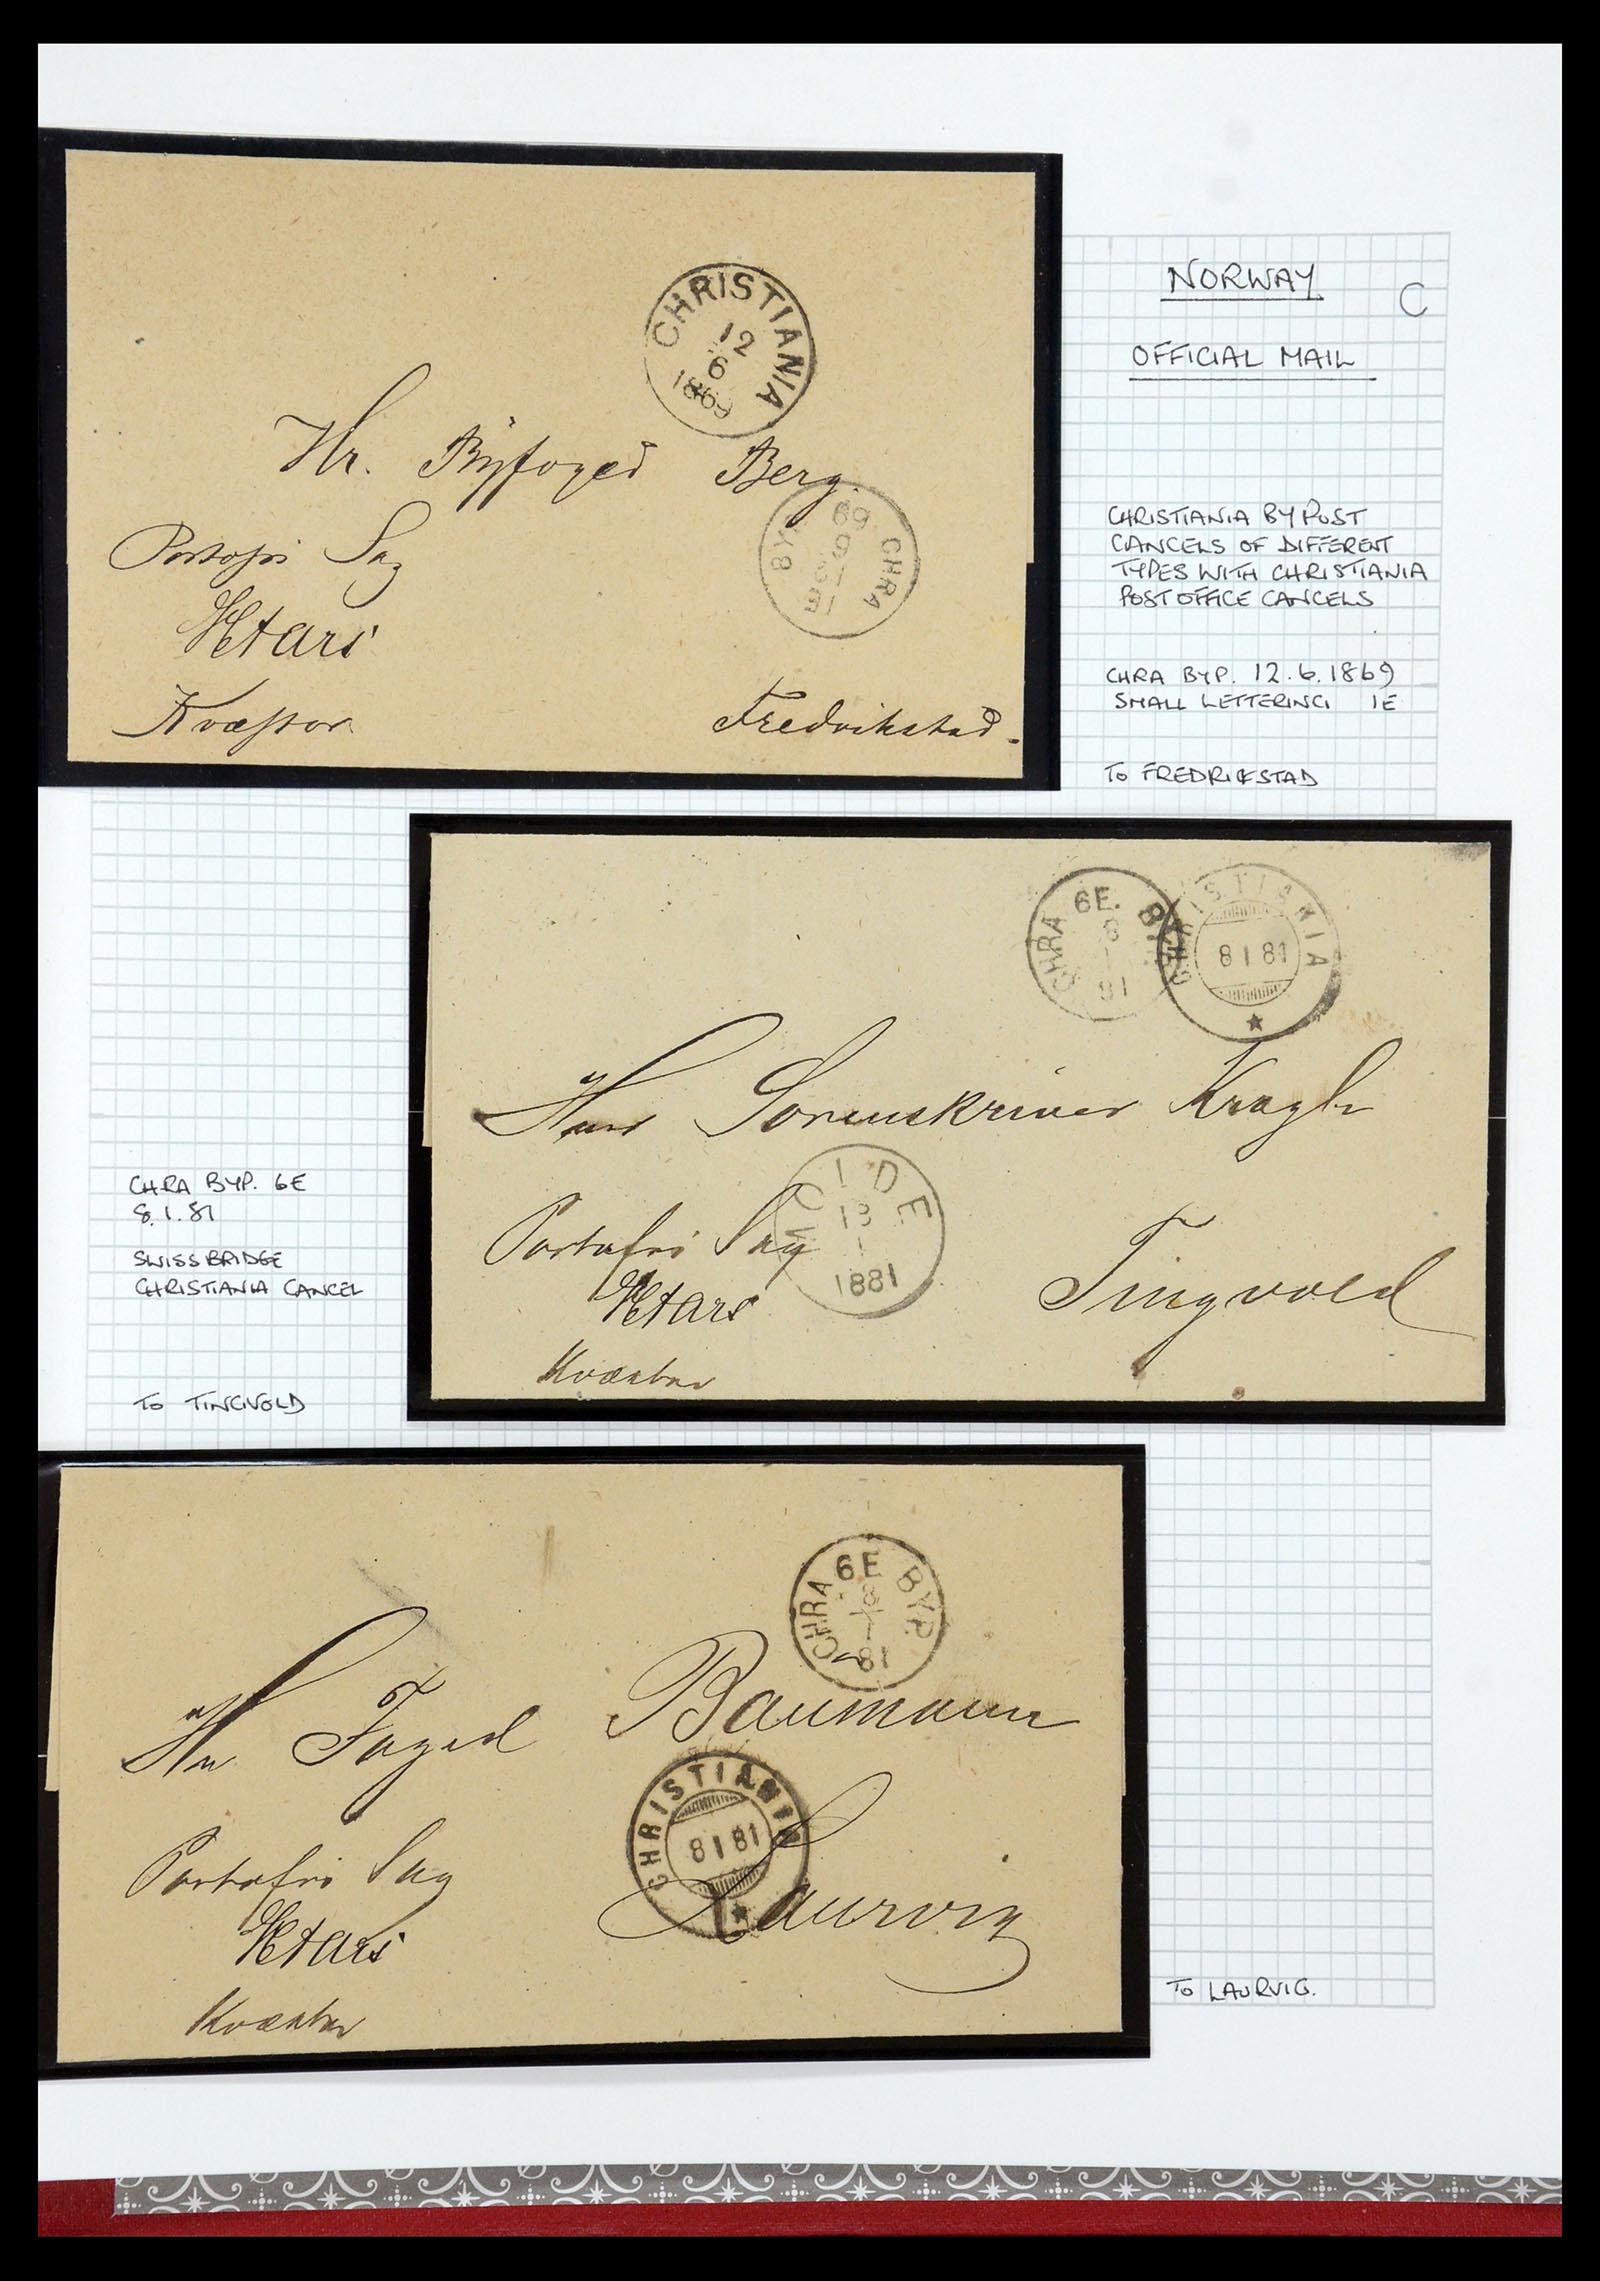 NORWAY
C
OFFICIAL MAIL
CHRISTIANIA
12
6
1869
Hr. Byfoged Berg.
Portofri Sag
CHRA BYP
69
Kvæstor
Fredrikstad.
CHRISTIANIA BYPOST
CANCELS OF DIFFERENT
TYPES WITH CHRISTIANIA
POST OFFICE CANCELS
CHRA BYP. 12.6.1869
SMALL LETTERING 1E
TO FREDRIKSTAD
CHRA 6E. BYP.
8
1
81
CHRISTIANIA
8 1 81
Herr Sorenskriver Kragh
Portofri Sag
MOIDE
13
1
1881
Tingvold
Kvæstor
CHRA BYP. 6E
8.1.81
SWISS BRIDGE
CHRISTIANIA CANCEL
TO TINGVOLD
CHRA 6E BYP.
8
1
81
Hr Foged Baumann
CHRISTIANIA
8 1 81
Portofri Sag
Laurvig
Kvæstor
TO LAURVIG.